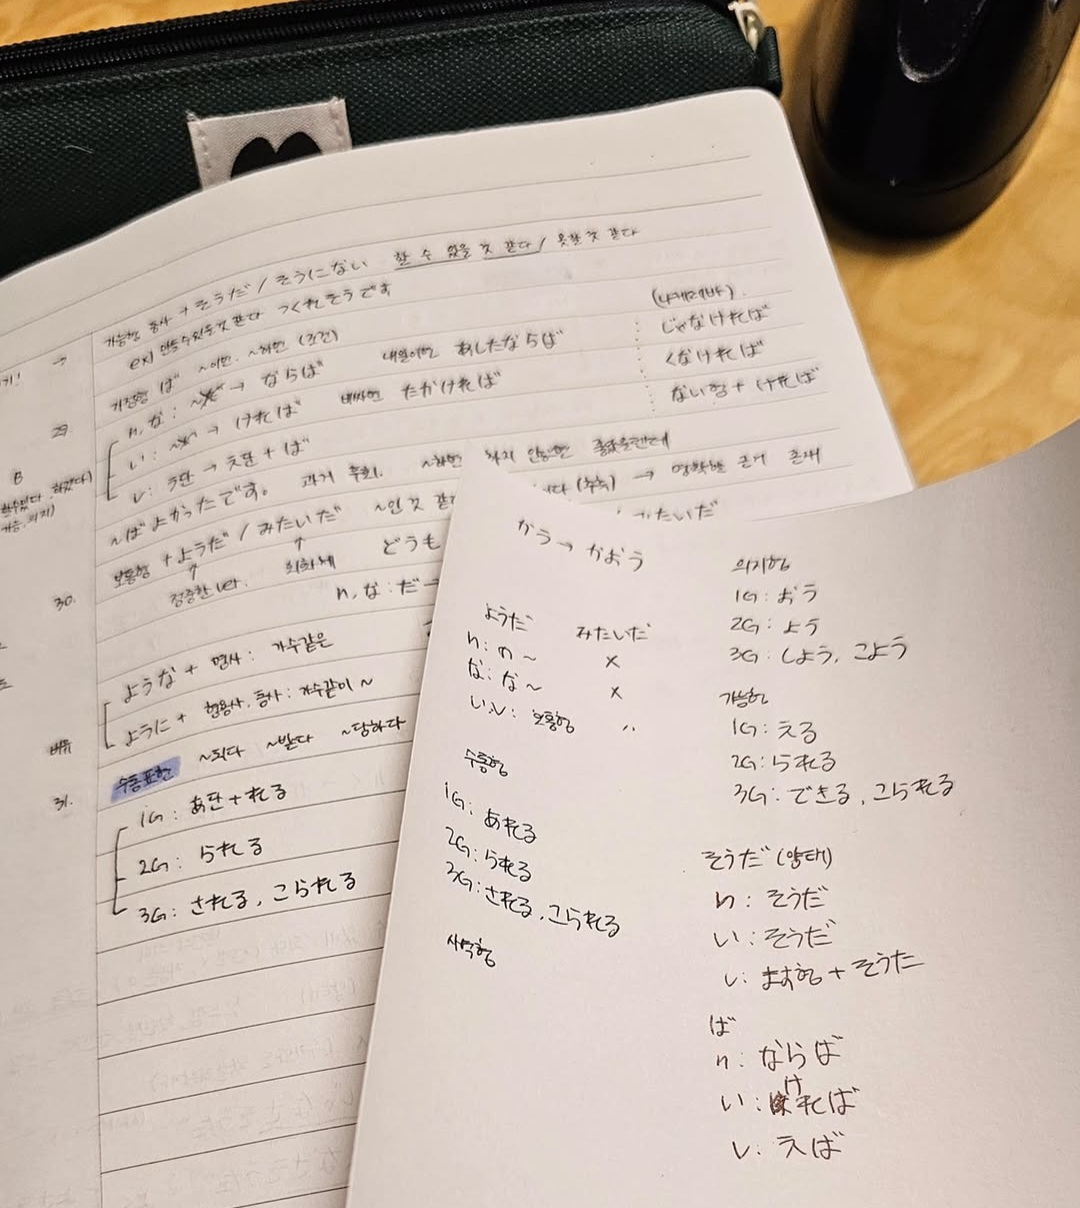 가능형 동사 + そうだ / そうにない 할 수 있을 것 같다 / 못할 것 같다
ex) 만들 수 있을 것 같다 つくれそうです
가정형 ば ~이면, ~하면 (조건)
(나케레바)
29.
n, な: → ならば 내일이면 あしたならば じゃなければ
い: → ければ 비싸면 たかければ くなければ
v: う단 → え단 + ば ない형 + ければ
B
~ばよかったです。 과거 후회. ~하면 하지 않았으면 좋았을텐데
보통형 + ようだ / みたいだ ~인 것 같 (추측) → 명확한 근거 존재
정중한 ver. 회화체 どうも みたいだ
30.
n, な: だ→
ような + 명사: 가수같은
ように + 형용사, 동사: 가수같이 ~
비유
31.
수동표현 ~되다 ~받다 ~당하다
1G: あ단+れる
2G: られる
3G: される, こられる
かう → かおう
ようだ みたいだ
n: の ~ ×
な: な ~ ×
い,v: 보통형 〃
수동형
1G: あれる
2G: られる
3G: される, こられる
사역형
의지형
1G: おう
2G: よう
3G: しよう, こよう
가능형
1G: える
2G: られる
3G: できる, こられる
そうだ (양태)
n: そうだ
い: そうだ
v: ます형 + そうた
ば
n: ならば
い: ければ
v: えば